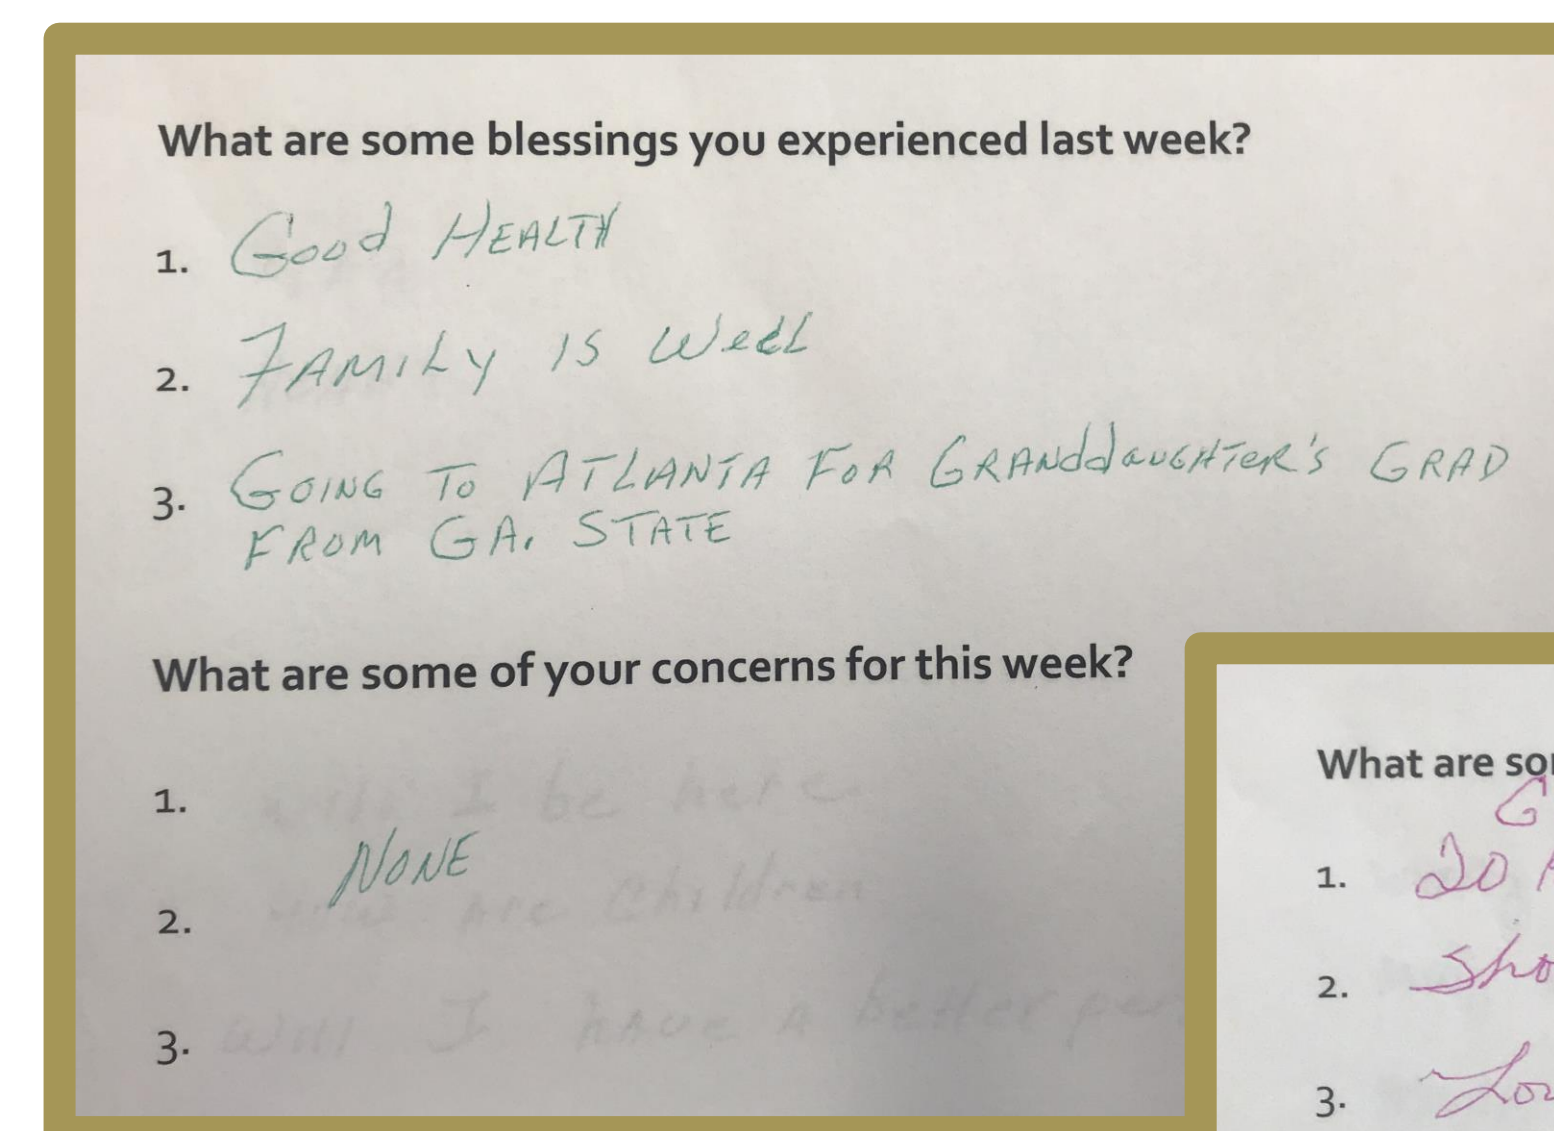 What are some blessings you experienced last week?
1. Good HEALTH
2. FAMILY IS Well
3. GOING TO ATLANTA FOR GRANDdAUGHTER'S GRAD
FROM GA. STATE
What are some of your concerns for this week?
1. will I be here
NONE
2. are Children
3. Will I have A better
What are
G
1.
2. Sho
3.